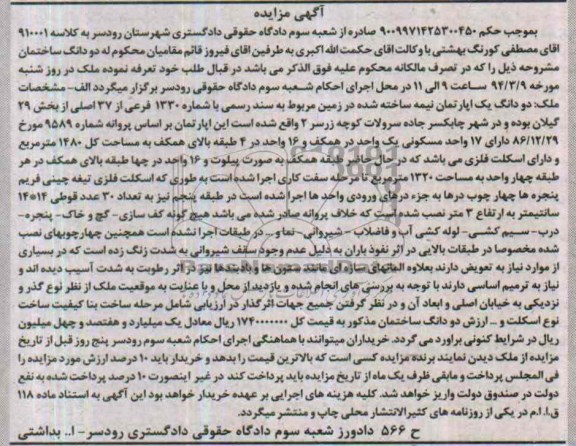 آگهی مزایده
بموجب حکم ۹۰۰۹۹۷۱۴۲۵۳۰۰۴۵۰ صادره از شعبه سوم دادگاه حقوقی دادگستری شهرستان رودسر به کلاسه ۹۱۰۰۰۱
اقای مصطفی کورنگ بهشتی با وکالت اقای حکمت الله اکبری به طرفیت اقای فیروز قائم مقامیان محکوم له دو دانگ ساختمان
مشروحه ذیل را که در تصرف مالکانه محکوم علیه فوق الذکر می باشد در قبال طلب خود تعرفه نموده ملک در روز شنبه
مورخه ۹۴/۳/۹ ساعت ۹ الی ۱۱ در محل اجرای احکام شعبه سوم دادگاه حقوقی رودسر برگزار میگردد الف - مشخصات
ملک: دو دانگ یک اپارتمان نیمه ساخته شده در زمین مربوط به سند رسمی با شماره ۱۳۳۰ فرعی از ۳۷ اصلی از بخش ۲۹
گیلان بوده و در شهر چابکسر جاده سرولات کوچه زرسر ۲ واقع شده است این اپارتمان بر اساس پروانه شماره ۹۵۸۹ مورخ
۸۶/۱۲/۲۹ دارای ۱۷ واحد مسکونی یک واحد در همکف و ۱۶ واحد در ۴ طبقه بالای همکف به مساحت کل ۱۴۸۰ مترمربع
و دارای اسکلت فلزی می باشد که در حال حاضر طبقه همکف به صورت پیلوت و ۱۶ واحد در چها طبقه بالای همکف در هر
طبقه چهار واحد به مساحت ۱۳۲۰ مترمربع تا مرحله سفت کاری اجرا شده است به طوری که اسکلت فلزی تیغه چینی فریم
پنجره ها چهار چوب درها به جزء در های ورودی واحد ها اجرا شده است در طبقه پنجم نیز به تعداد ۳۰ عدد قوطی ۱۴*۱۴
سانتیمتر به ارتفاع ۳ متر نصب شده است که خلاف پروانه صادر شده می باشد هیچ گونه کف سازی - گچ و خاک - پنجره -
درب - سیم کشی - لوله کشی آب و فاضلاب - شیروانی - نما و ... در طبقات اجرا نشده است همچنین چهارچوبهای نصب
شده مخصوصا در طبقات بالایی در اثر نفوذ باران به دلیل عدم وجود سقف شیروانی به شدت زنگ زده است که در بسیاری
از موارد نیاز به تعویض دارند بعلاوه المانهای سازه ای مانند ستون ها و بادبندها نیز در اثر رطوبت به شدت آسیب دیده اند و
نیاز به ترمیم اساسی دارند با توجه به بررسی های انجام شده و بازدید از محل و با عنایت به موقعیت ملک از نظر نوع گذر و
نزدیکی به خیابان اصلی و ابعاد آن و در نظر گرفتن جمیع جهات اثرگذار در ارزیابی شامل مرحله ساخت بنا کیفیت ساخت
نوع اسکلت و ... ارزش دو دانگ ساختمان مذکور به قیمت کل ۱۷۴۰۰۰۰۰۰۰ ریال معادل یک میلیارد و هفتصد و چهل میلیون
ریال در شرایط کنونی براورد می گردد. خریداران میتوانند با هماهنگی اجرای احکام شعبه سوم رودسر پنج روز قبل از تاریخ
مزایده از ملک دیدن نمایند برنده مزایده کسی است که بالاترین قیمت را بدهد و خریدار باید ۱۰ درصد ارزش مورد مزایده را
فی المجلس پرداخت و مابقی ظرف یک ماه از تاریخ مزایده باید پرداخت کند در غیر اینصورت ۱۰ درصد پرداخت شده به نفع
دولت در صندوق دولت واریز خواهد شد. کلیه هزینه های اجرایی بر عهده خریدار خواهد بود این آگهی به استناد ماده ۱۱۸
ق.ا.ا.م در یکی از روزنامه های کثیرالانتشار محلی چاپ و منتشر میگردد.
ح ۵۶۶ دادورز شعبه سوم دادگاه حقوقی دادگستری رودسر - ا.. بداشتی